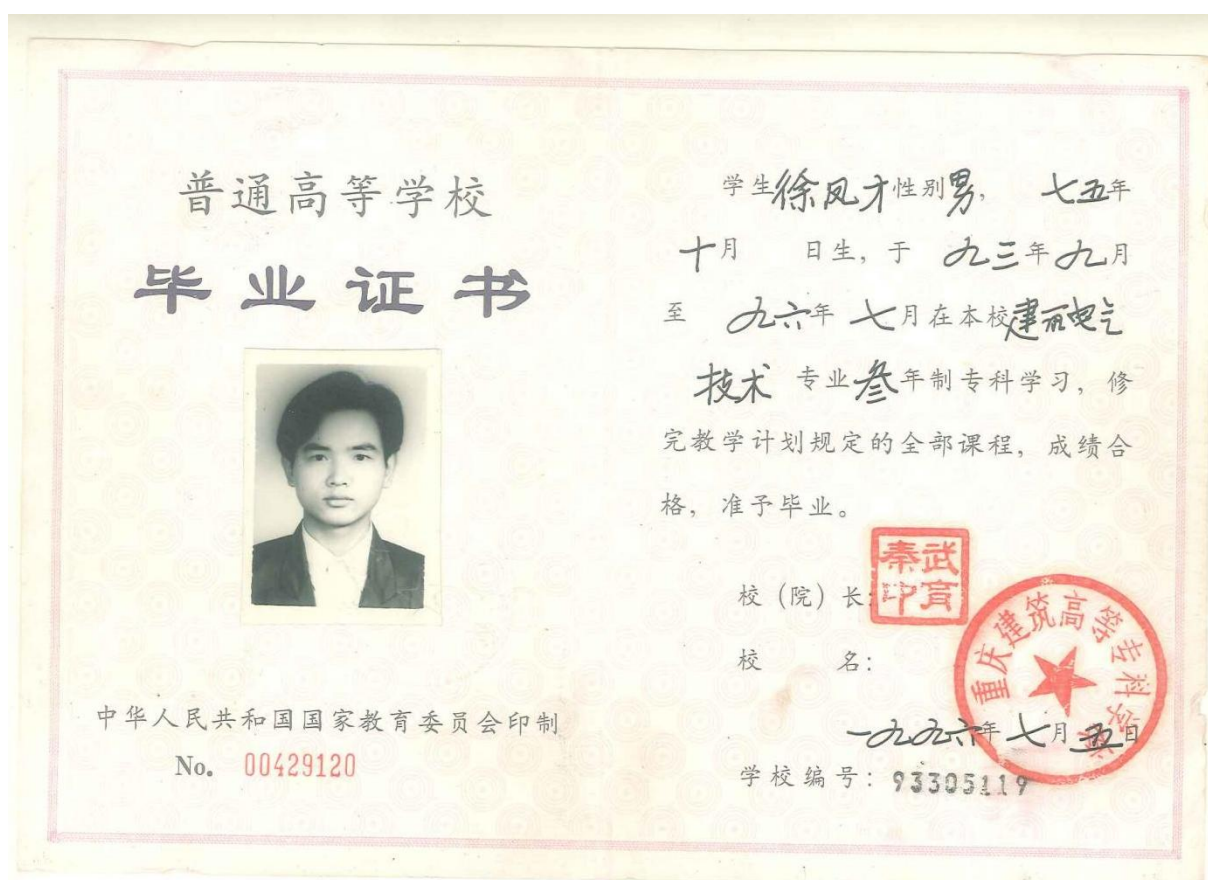 普通高等学校
毕业证书
中华人民共和国国家教育委员会印制
No. 00429120
学生徐凤才性别男, 七五年
十月 日生, 于 九三年九月
至 九六年 七月在本校建筑电气
技术 专业叁年制专科学习, 修
完教学计划规定的全部课程, 成绩合
格, 准予毕业。
校 (院) 长:
武育
秦印
校 名:
重庆建筑高等专科学校
一九九六年七月五日
学校编号: 93305119